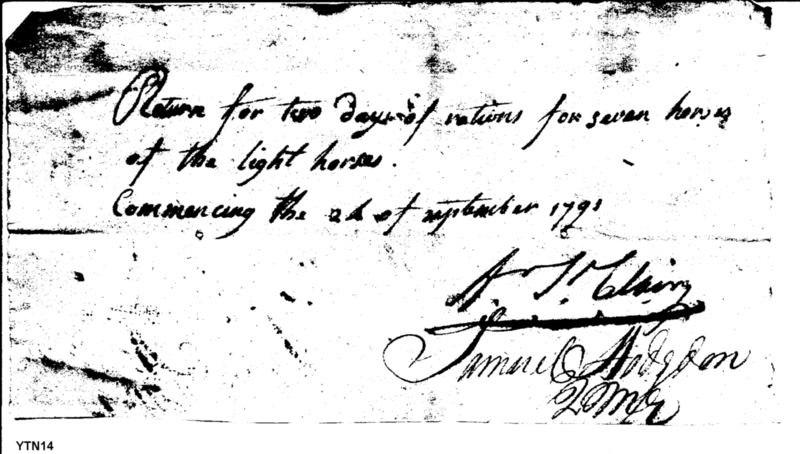 Return for two days of rations for seven horses
of the light horses.
Commencing the 2d of september 1791
Ar St. Clair
Samuel Hodgdon
QMG
YTN14